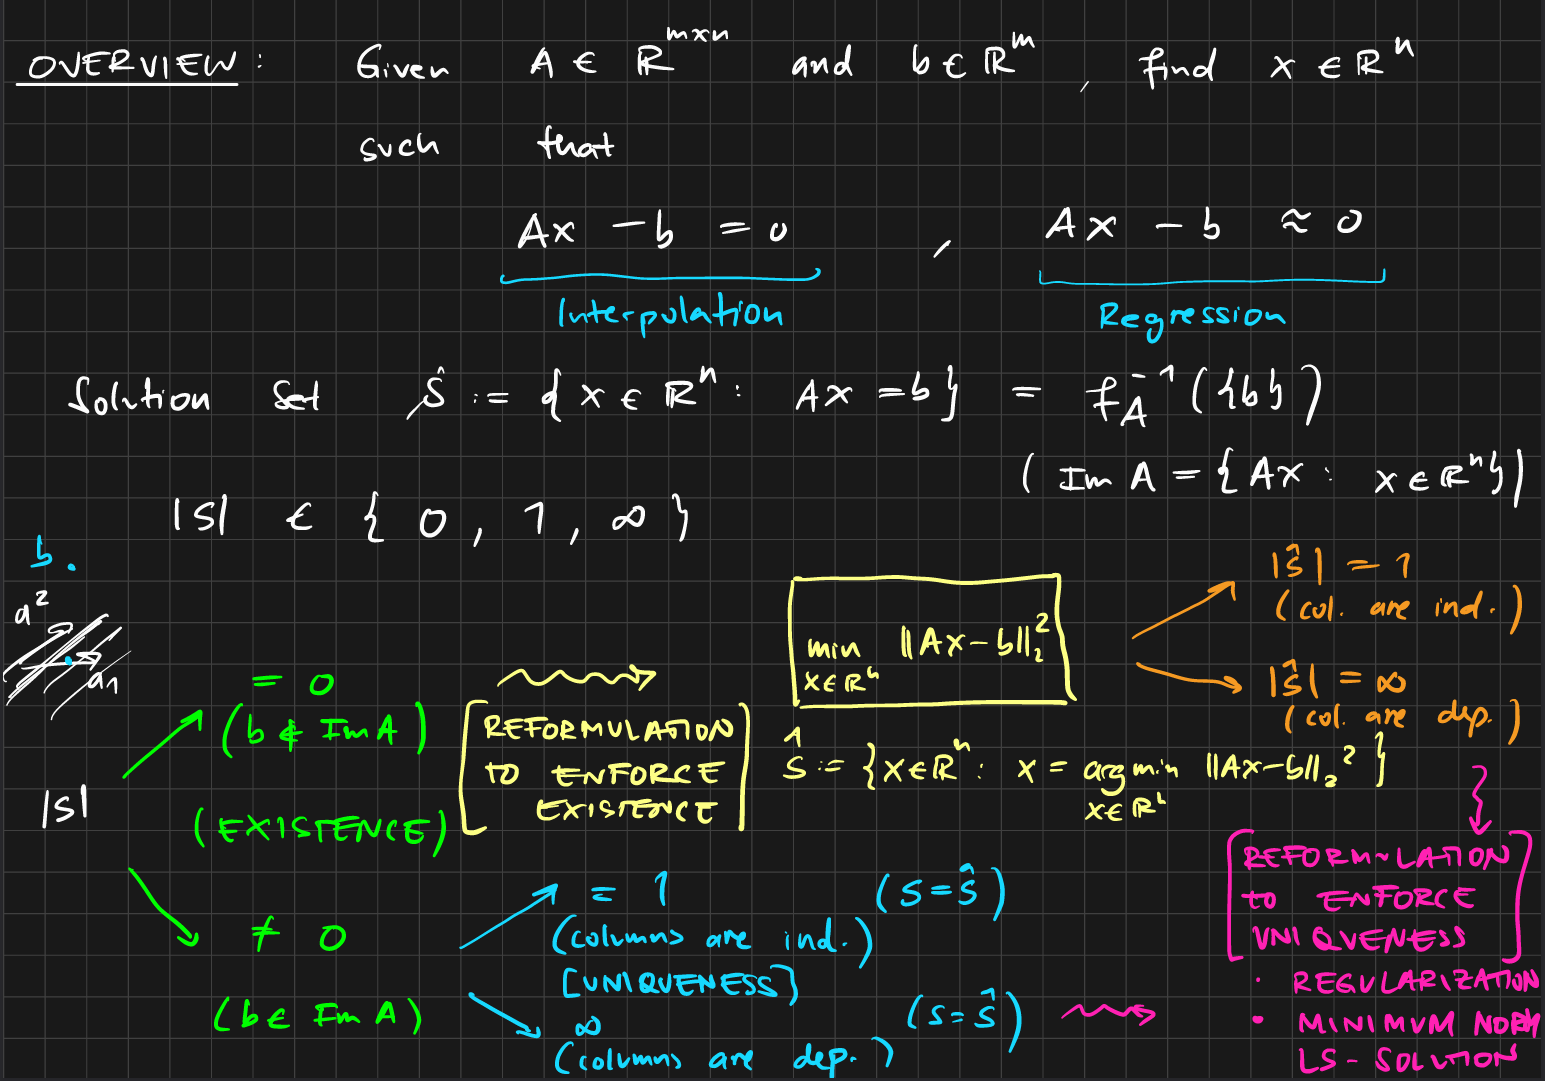 OVERVIEW : Given A ∈ ℝ^{m×n} and b ∈ ℝ^m, find x ∈ ℝ^n
such that
Ax - b = 0 , Ax - b ≈ 0
Interpolation Regression
Solution Set Ŝ := { x ∈ ℝ^n : Ax = b } = f_A^{-1}({b})
( Im A = { Ax : x ∈ ℝ^n })
|S| ∈ { 0, 1, ∞ }
b .
a²
a₁
= 0
(b ∉ Im A)
(EXISTENCE)
|S|
≠ 0
(b ∈ Im A)
[REFORMULATION
TO ENFORCE
EXISTENCE]
min ||Ax-b||₂²
x∈ℝ^n
Ŝ := {x∈ℝ^n : x = argmin ||Ax-b||₂² }
x∈ℝ^n
|Ŝ| = 1
(col. are ind.)
|Ŝ| = ∞
(col. are dep.)
= 1 (S = Ŝ)
(columns are ind.)
[UNIQUENESS]
∞ (S = Ŝ)
(columns are dep.)
[REFORMULATION
TO ENFORCE
UNIQUENESS]
· REGULARIZATION
• MINIMUM NORM
LS - SOLUTION